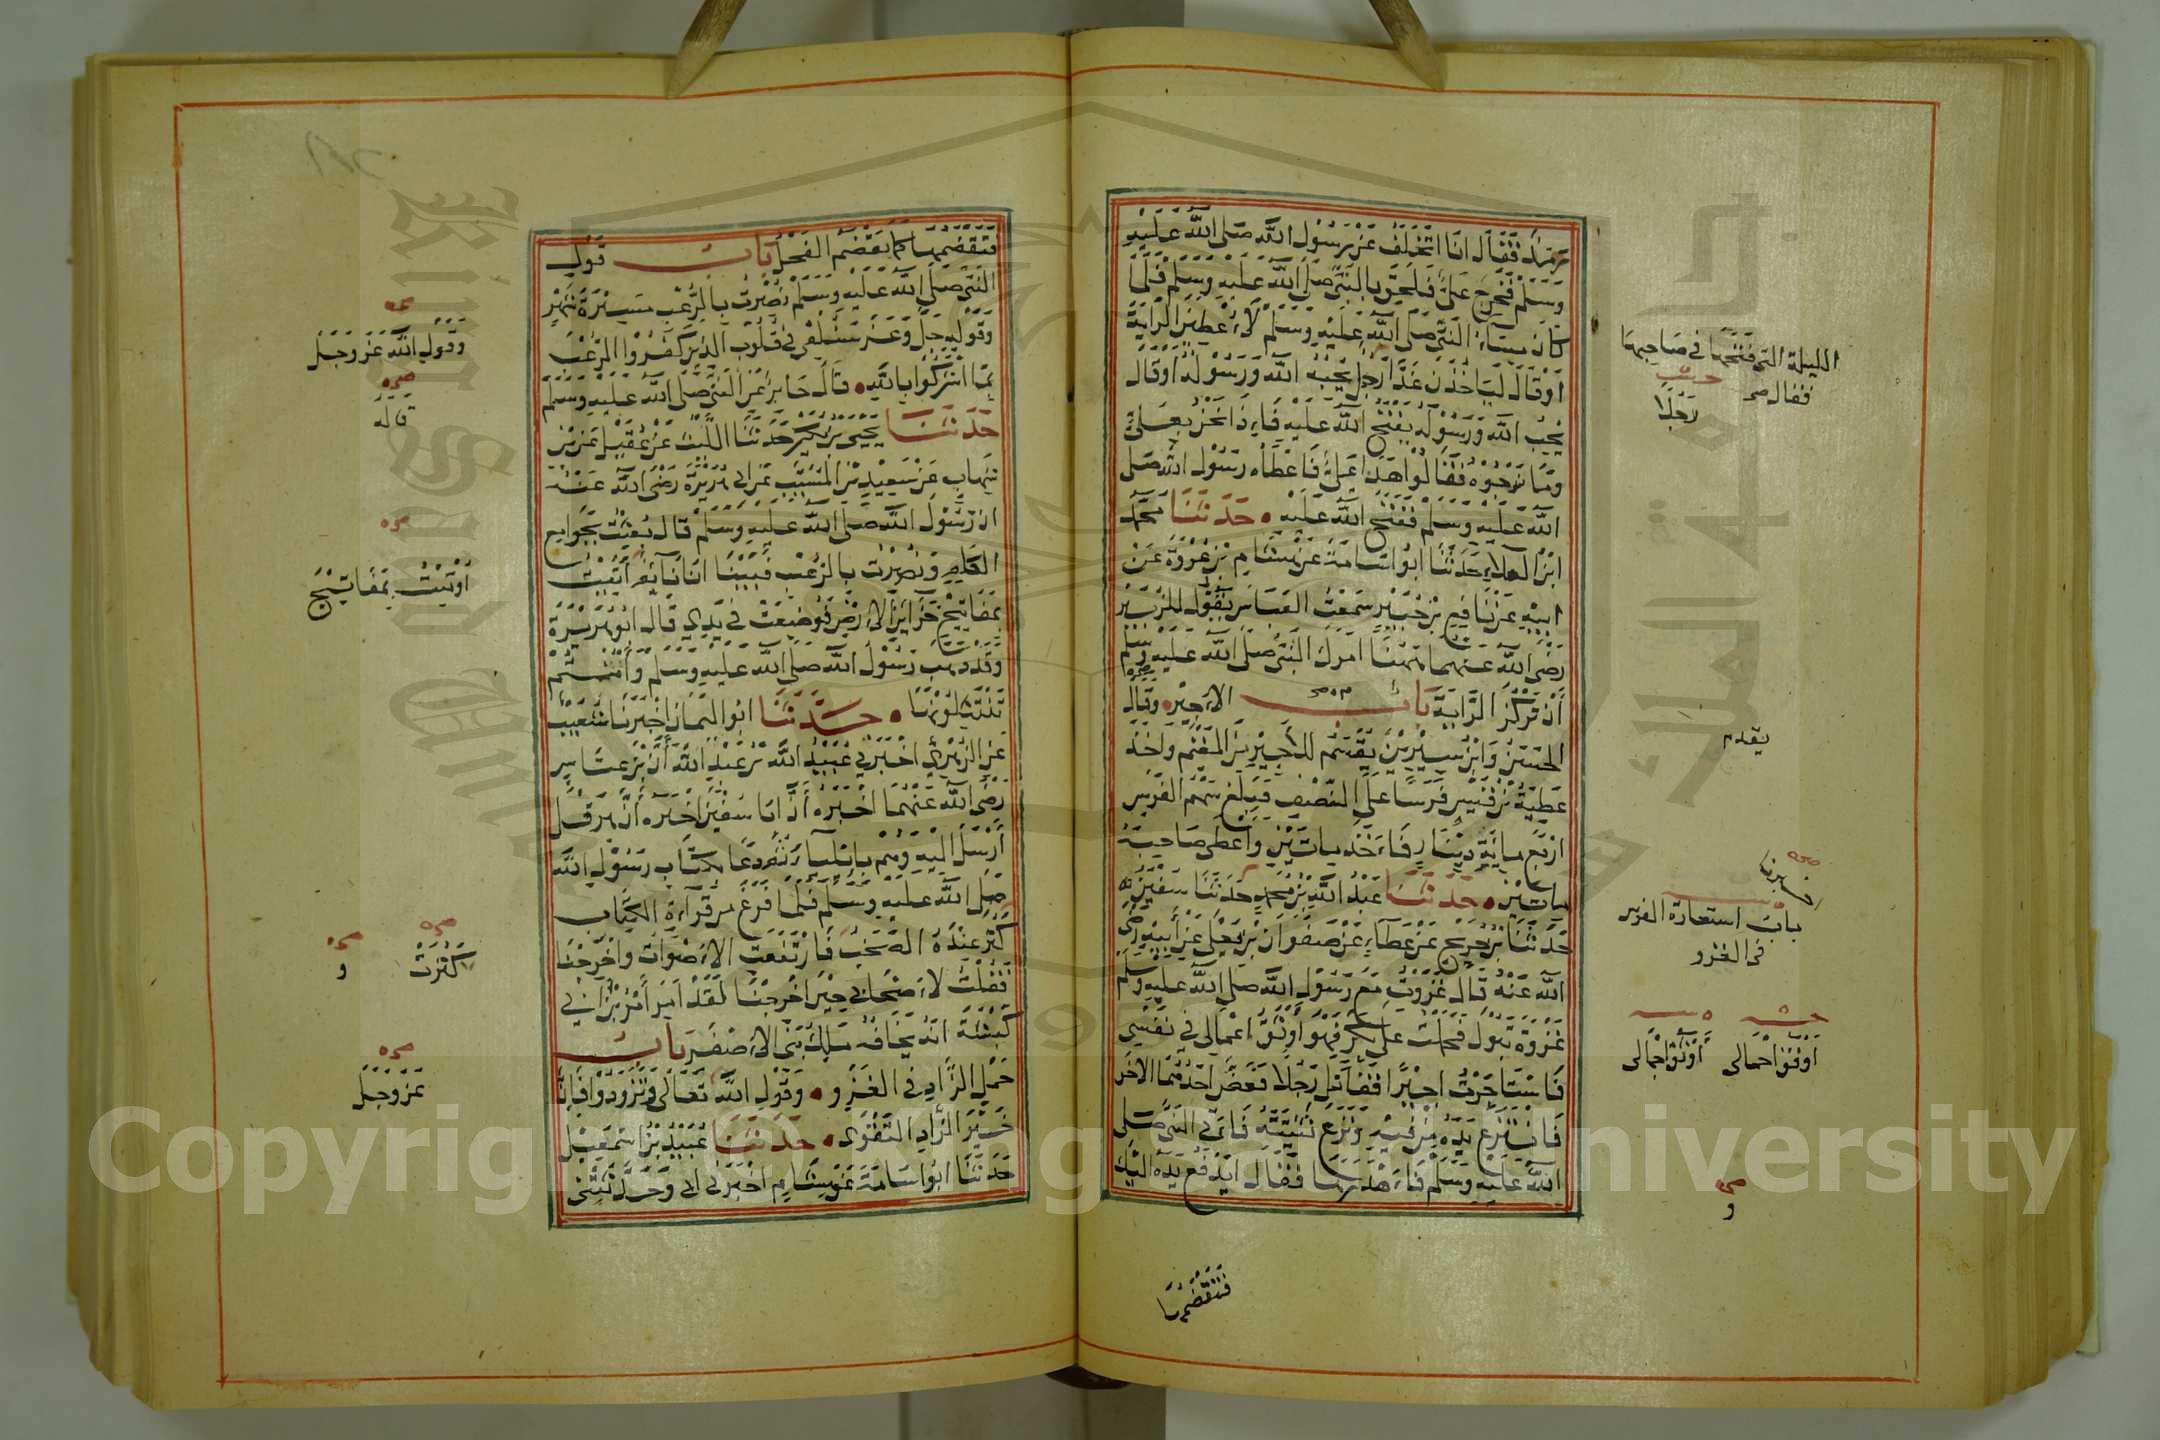 رمد فقال انا اتخلف عن رسول الله صلى الله عليه
وسلم فخرج على فلحق بالنبى صلى الله عليه وسلم فلما
كان مساء النبى صلى الله عليه وسلم لاعطين الراية
اوقال لياخذن غدا رجل يحبه الله ورسوله اوقال
يحب الله ورسوله يفتح الله عليه فاذا نحن بعلى
وما نرجوه فقالوا هذا على فاعطاه رسول الله صلى
الله عليه وسلم ففتح الله عليه حدثنا محمد
ابن العلاء حدثنا ابو اسامة عن هشام بن عروة عن
ابيه عن نافع بن جبير سمعت العباس يقول للزبير
رضى الله عنهما ههنا امرك النبى صلى الله عليه وسلم
أن تركز الراية باب الاجير وقال
الحسن وابن سيرين يقسم للأجير من المغنم واخذ
عطية بن قيس فرسا على النصف فبلغ سهم الفرس
اربع ماية دينار فاخذ ماتين واعطى صاحبه
ماتين حدثنا عبد الله بن محمد حدثنا سفين
حدثنا بن جريج عن عطاء عن صفوان بن يعلى عن أبيه رضى
الله عنه قال غزوت مع رسول الله صلى الله عليه وسلم
غزوة تبوك فحملت على بكر فهو أوثق اعمالى فى نفسى
فاستاجرت اجيرا فقاتل رجلا فعض احدهما الاخر
فانتزع يده من فيه ونزع ثنيته فاتى النبى صلى
الله عليه وسلم فاهدرها فقال ايدفع يده اليك
فتقضمها
الليلة التى فتحها فى صباحها
فقال
رجلا
يقدم
باب استعارة الفرس
فى الغزو
أوثق احمالى
أوثق اجمالى
و
فتقضمها كما يقضم الفحل باب قول
النبى صلى الله عليه وسلم نصرت بالرعب مسيرة شهر
وقوله جل وعز سنلقى فى قلوب الذين كفروا الرعب
بما اشركوا بالله قال جابر عن النبى صلى الله عليه وسلم
حدثنا يحيى بن بكير حدثنا الليث عن عقيل عن بن
شهاب عن سعيد بن المسيب عن ابى هريرة رضى الله عنه
ان رسول الله صلى الله عليه وسلم قال بعثت بجوامع
الكلم ونصرت بالرعب فبينا انا نايم أتيت
بمفاتيح خزاين الارض فوضعت فى يدى قال ابو هريرة
وقد ذهب رسول الله صلى الله عليه وسلم وأنتم
تنتثلونها حدثنا ابو اليمان اخبرنا شعيب
عن الزهرى اخبرنى عبيد الله بن عبد الله أن بن عباس
رضى الله عنهما اخبره أن ابا سفين اخبره أن هرقل
أرسل اليه وهم بايلياء ثم دعا بكتاب رسول الله
صلى الله عليه وسلم فلما فرغ من قراءة الكتاب
كثر عنده الصخب فارتفعت الاصوات واخرجنا
فقلت لاصحابى حين اخرجنا لقد أمر أمر بن أبى
كبشة انه يخافه ملك بنى الاصفر باب
حمل الزاد فى الغزو وقول الله تعالى وتزودوا فان
خير الزاد التقوى حدثنا عبيد بن اسمعيل
حدثنا ابو اسامة عن هشام اخبرنى ابى وحدثتنى
وقول الله عز وجل
قاله
أوتيت بمفاتيح
كثرت
و
عز وجل
King Saud University
جامعة الملك سعود
Copyright © King Saud University